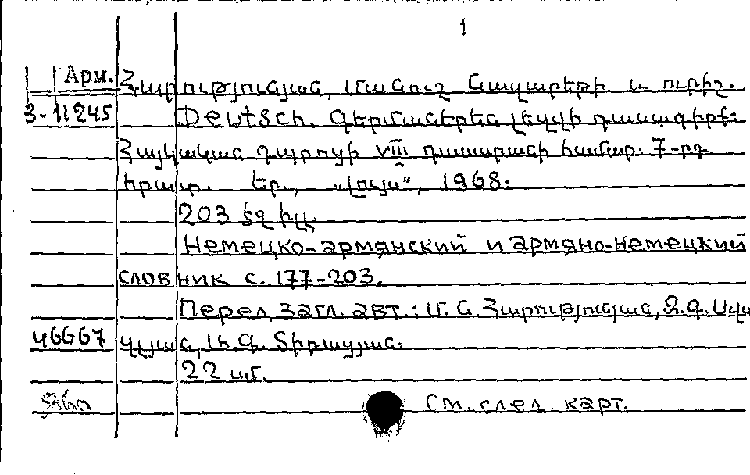 1
Арм. Հարությունյան, Մանուշ Նազարեթի և ուրիշ.
3-11245 Deutsch. Գերմաներեն լեզվի դասագիրք:
Հայկական դպրոցի VIII դասարանի համար. 7-րդ
հրատ. Եր., „Լույս“, 1968:
203 էջ իլ.
Немецко-армянский и армяно-немецкий
словник с. 177-203.
Перед загл. авт.: Մ. Ն. Հարությունյան, Զ. Գ.
46667 Գ. Տիրացյան:
22 սմ.
См. след. карт.